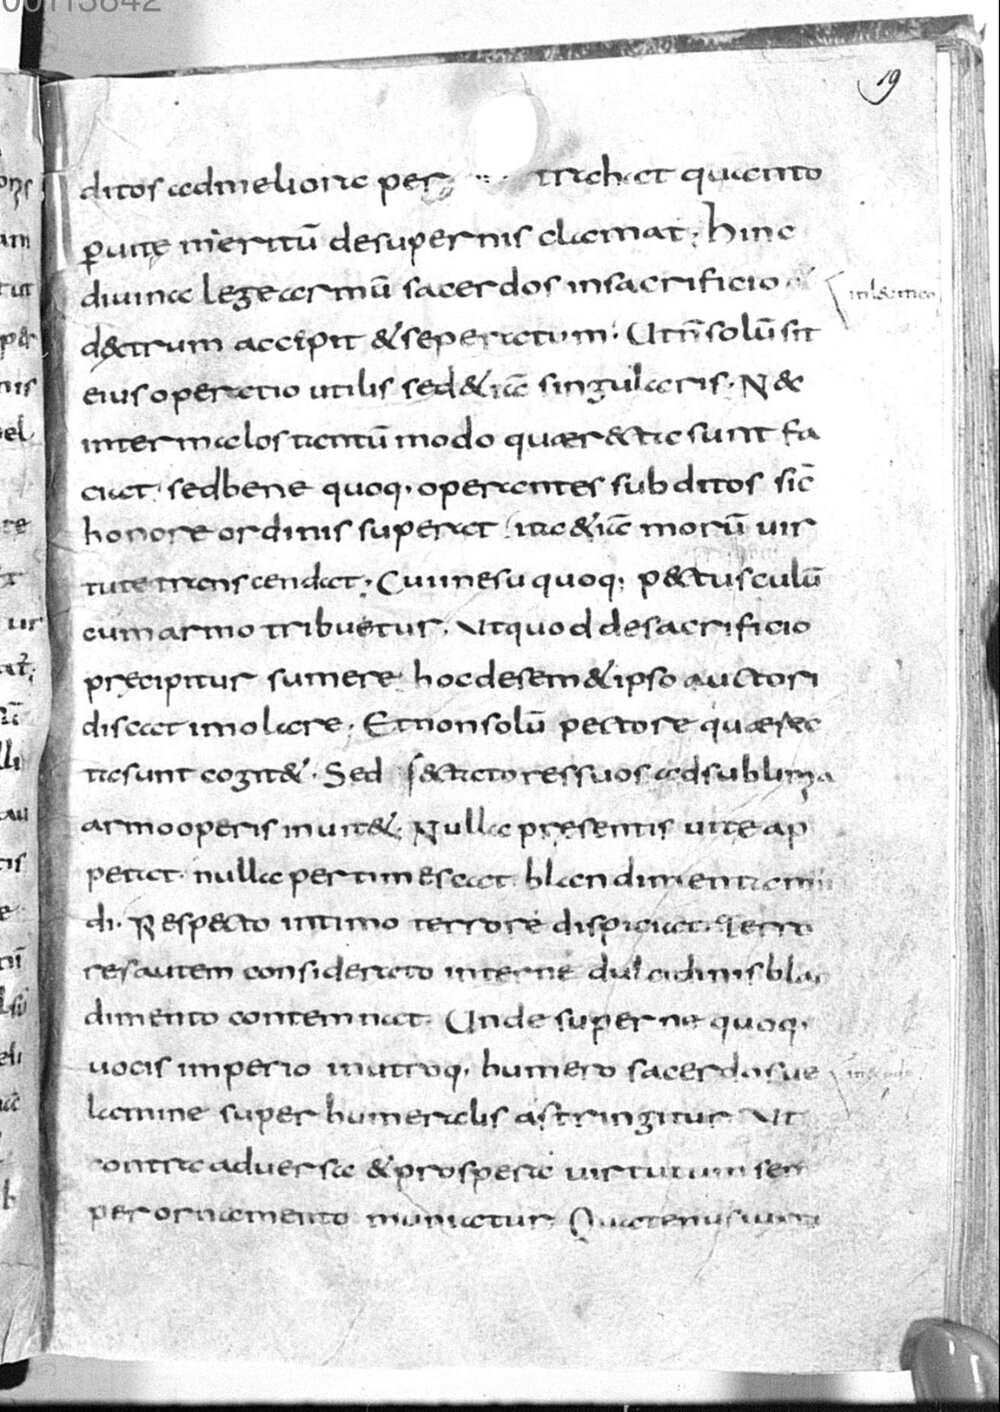 19
ditos ad meliora per trahat quanto
p uitę meritū desupernis clamat; hinc
diuina lege armū sacerdos insacrificio
d&trum accipit & seperatum. Utñ solū sit
eius operatio utilis sed & iā singularis. N &
inter malos tantū modo quær & ta sunt fa
ciat. sed bene quoq. operantes subditos sic̄
honore ordinis superat. ita & iā morū uir
tute transcendat; Cui inesu quoq; pectusculū
cum armo tribuetur. Ut quod desacrificio
pręcipitur sumere hoc desem & ipso auctori
discat imolare. Et non solū pectore quæ rec
ta sunt cogit &. Sed s & tatores suos ad sublima
armo operis inuit &. Nulla pręsentis uite ap
petat. nulla pertimescat. blandimenta
di. Respecto intimo terrore dispiciat. Terro
res autem considerato interne dulcidinis blan
dimento contemnat. Unde superne quoq.
uocis imperio inutroq. humero sacerdos ue
lamine super humeralis astringitur Ut
contra aduersa & prospera uirtutum sem
per ornamento muniatur. Quatenus iuxta